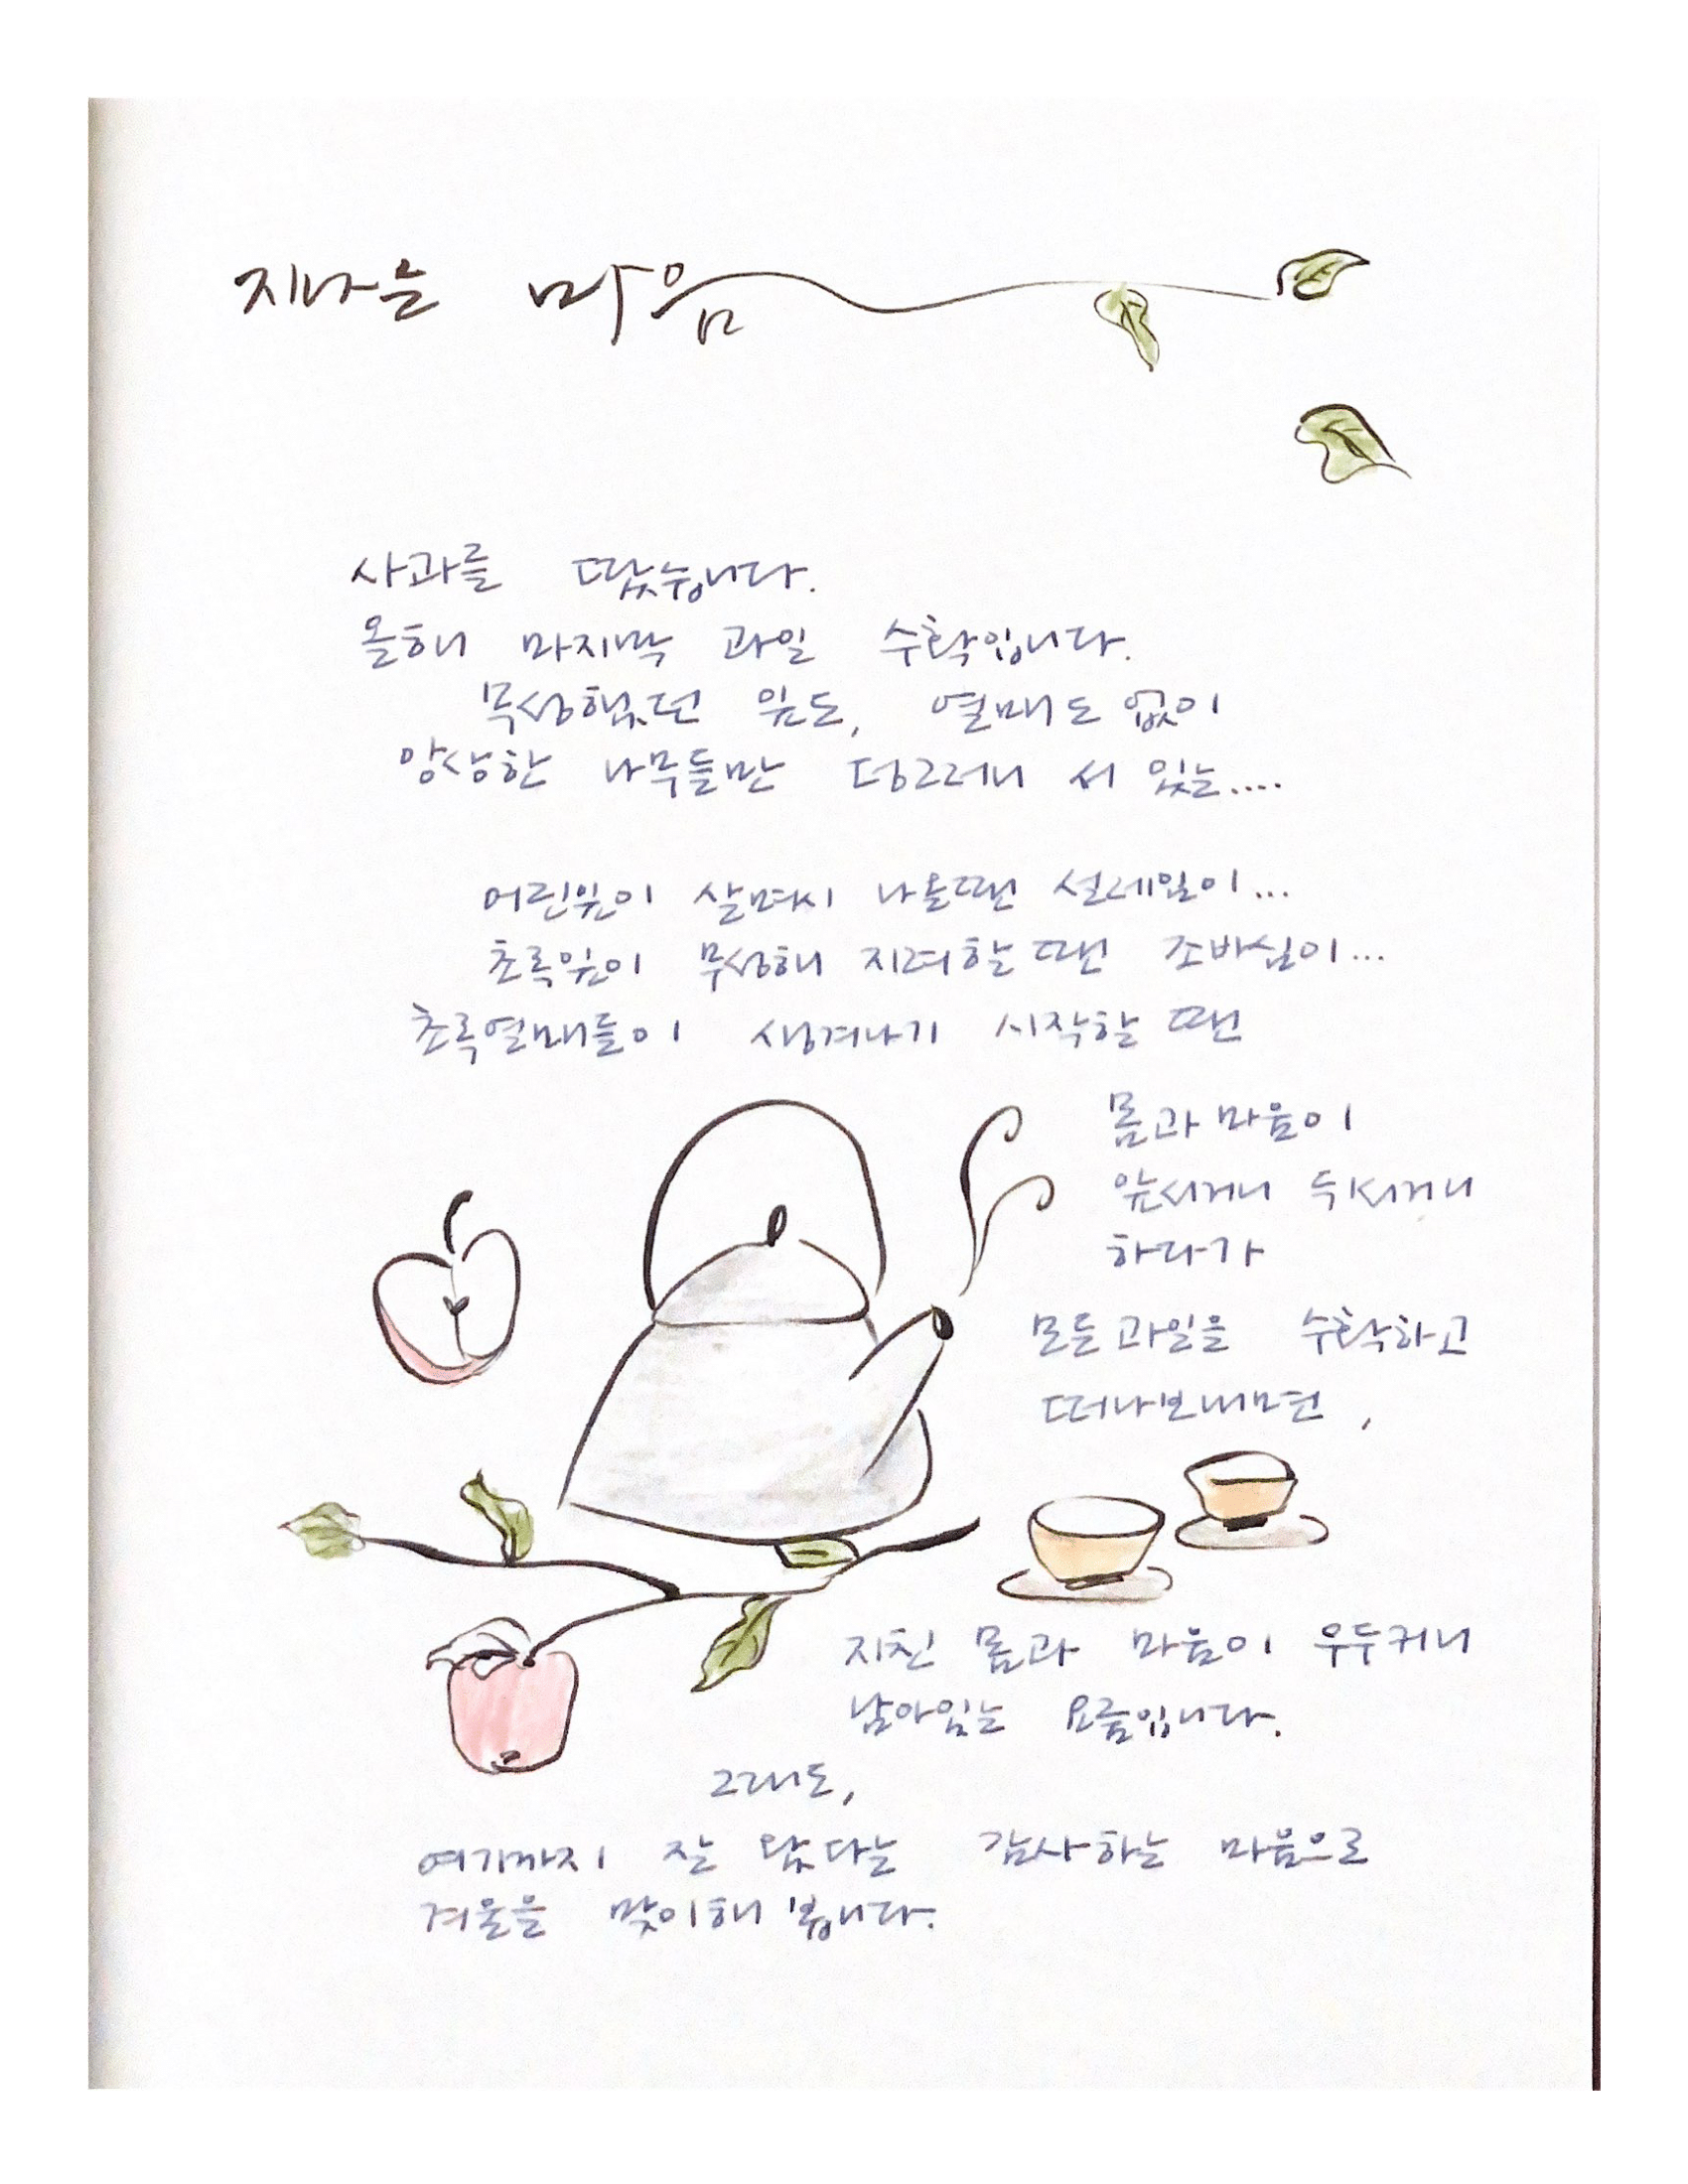 지나는 마음
사과를 땄습니다.
올해 마지막 과일 수확입니다.
무성했던 잎도, 열매도 없이
앙상한 나무들만 덩그러니 서 있는....
어린잎이 살며시 나올땐 설레임이...
초록잎이 무성해 지려할 땐 조바심이...
초록열매들이 생겨나기 시작할 땐
몸과 마음이
앞서거니 뒤서거니
하다가
모든 과일을 수확하고
떠나보내면,
지친 몸과 마음이 우두커니
남아있는 요즘입니다.
그래도,
여기까지 잘 왔다는 감사하는 마음으로
겨울을 맞이해 봅니다.